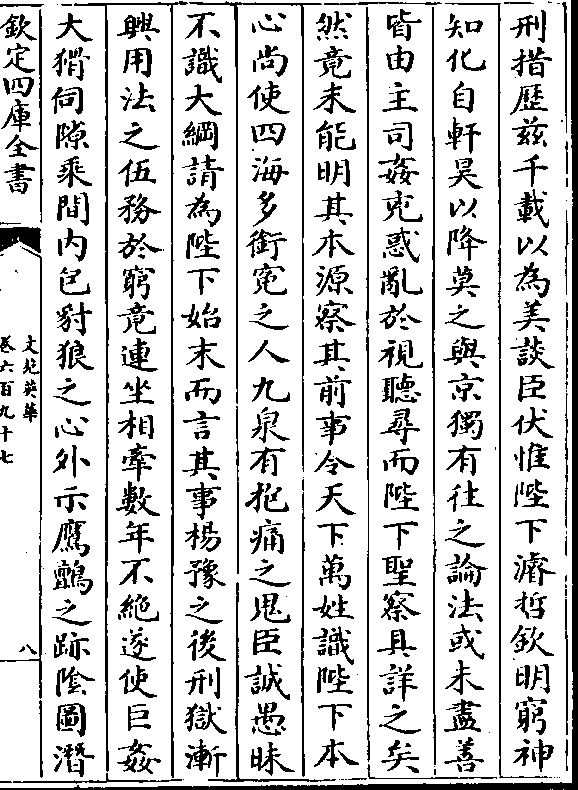 刑措歴兹千載以為美談臣伏惟陛下濬哲欽明窮神
知化自軒昊以降莫之與京獨有往之論法或未盡善
皆由主司姦兇惑亂於視聽尋而陛下聖察具詳之矣
然竟未能明其本源察其前事令天下萬姓識陛下本
心尚使四海多銜寃之人九泉有抱痛之鬼臣誠愚昧
不識大綱請為陛下始末而言其事楊豫之後刑獄漸
興用法之伍務於窮竟連坐相牽數年不絶遂使巨姦
大猾伺隙乘間内包豺狼之心外示鷹鸇之跡陰圖潛
欽定四庫全書
文苑英華
卷六百九十七
八